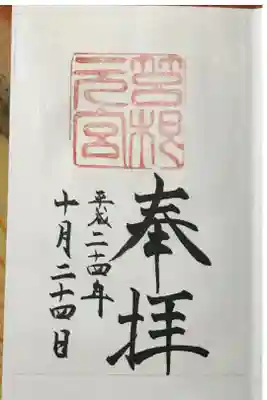 奉拝
箱根
元宮
平成二十四年
十月二十四日